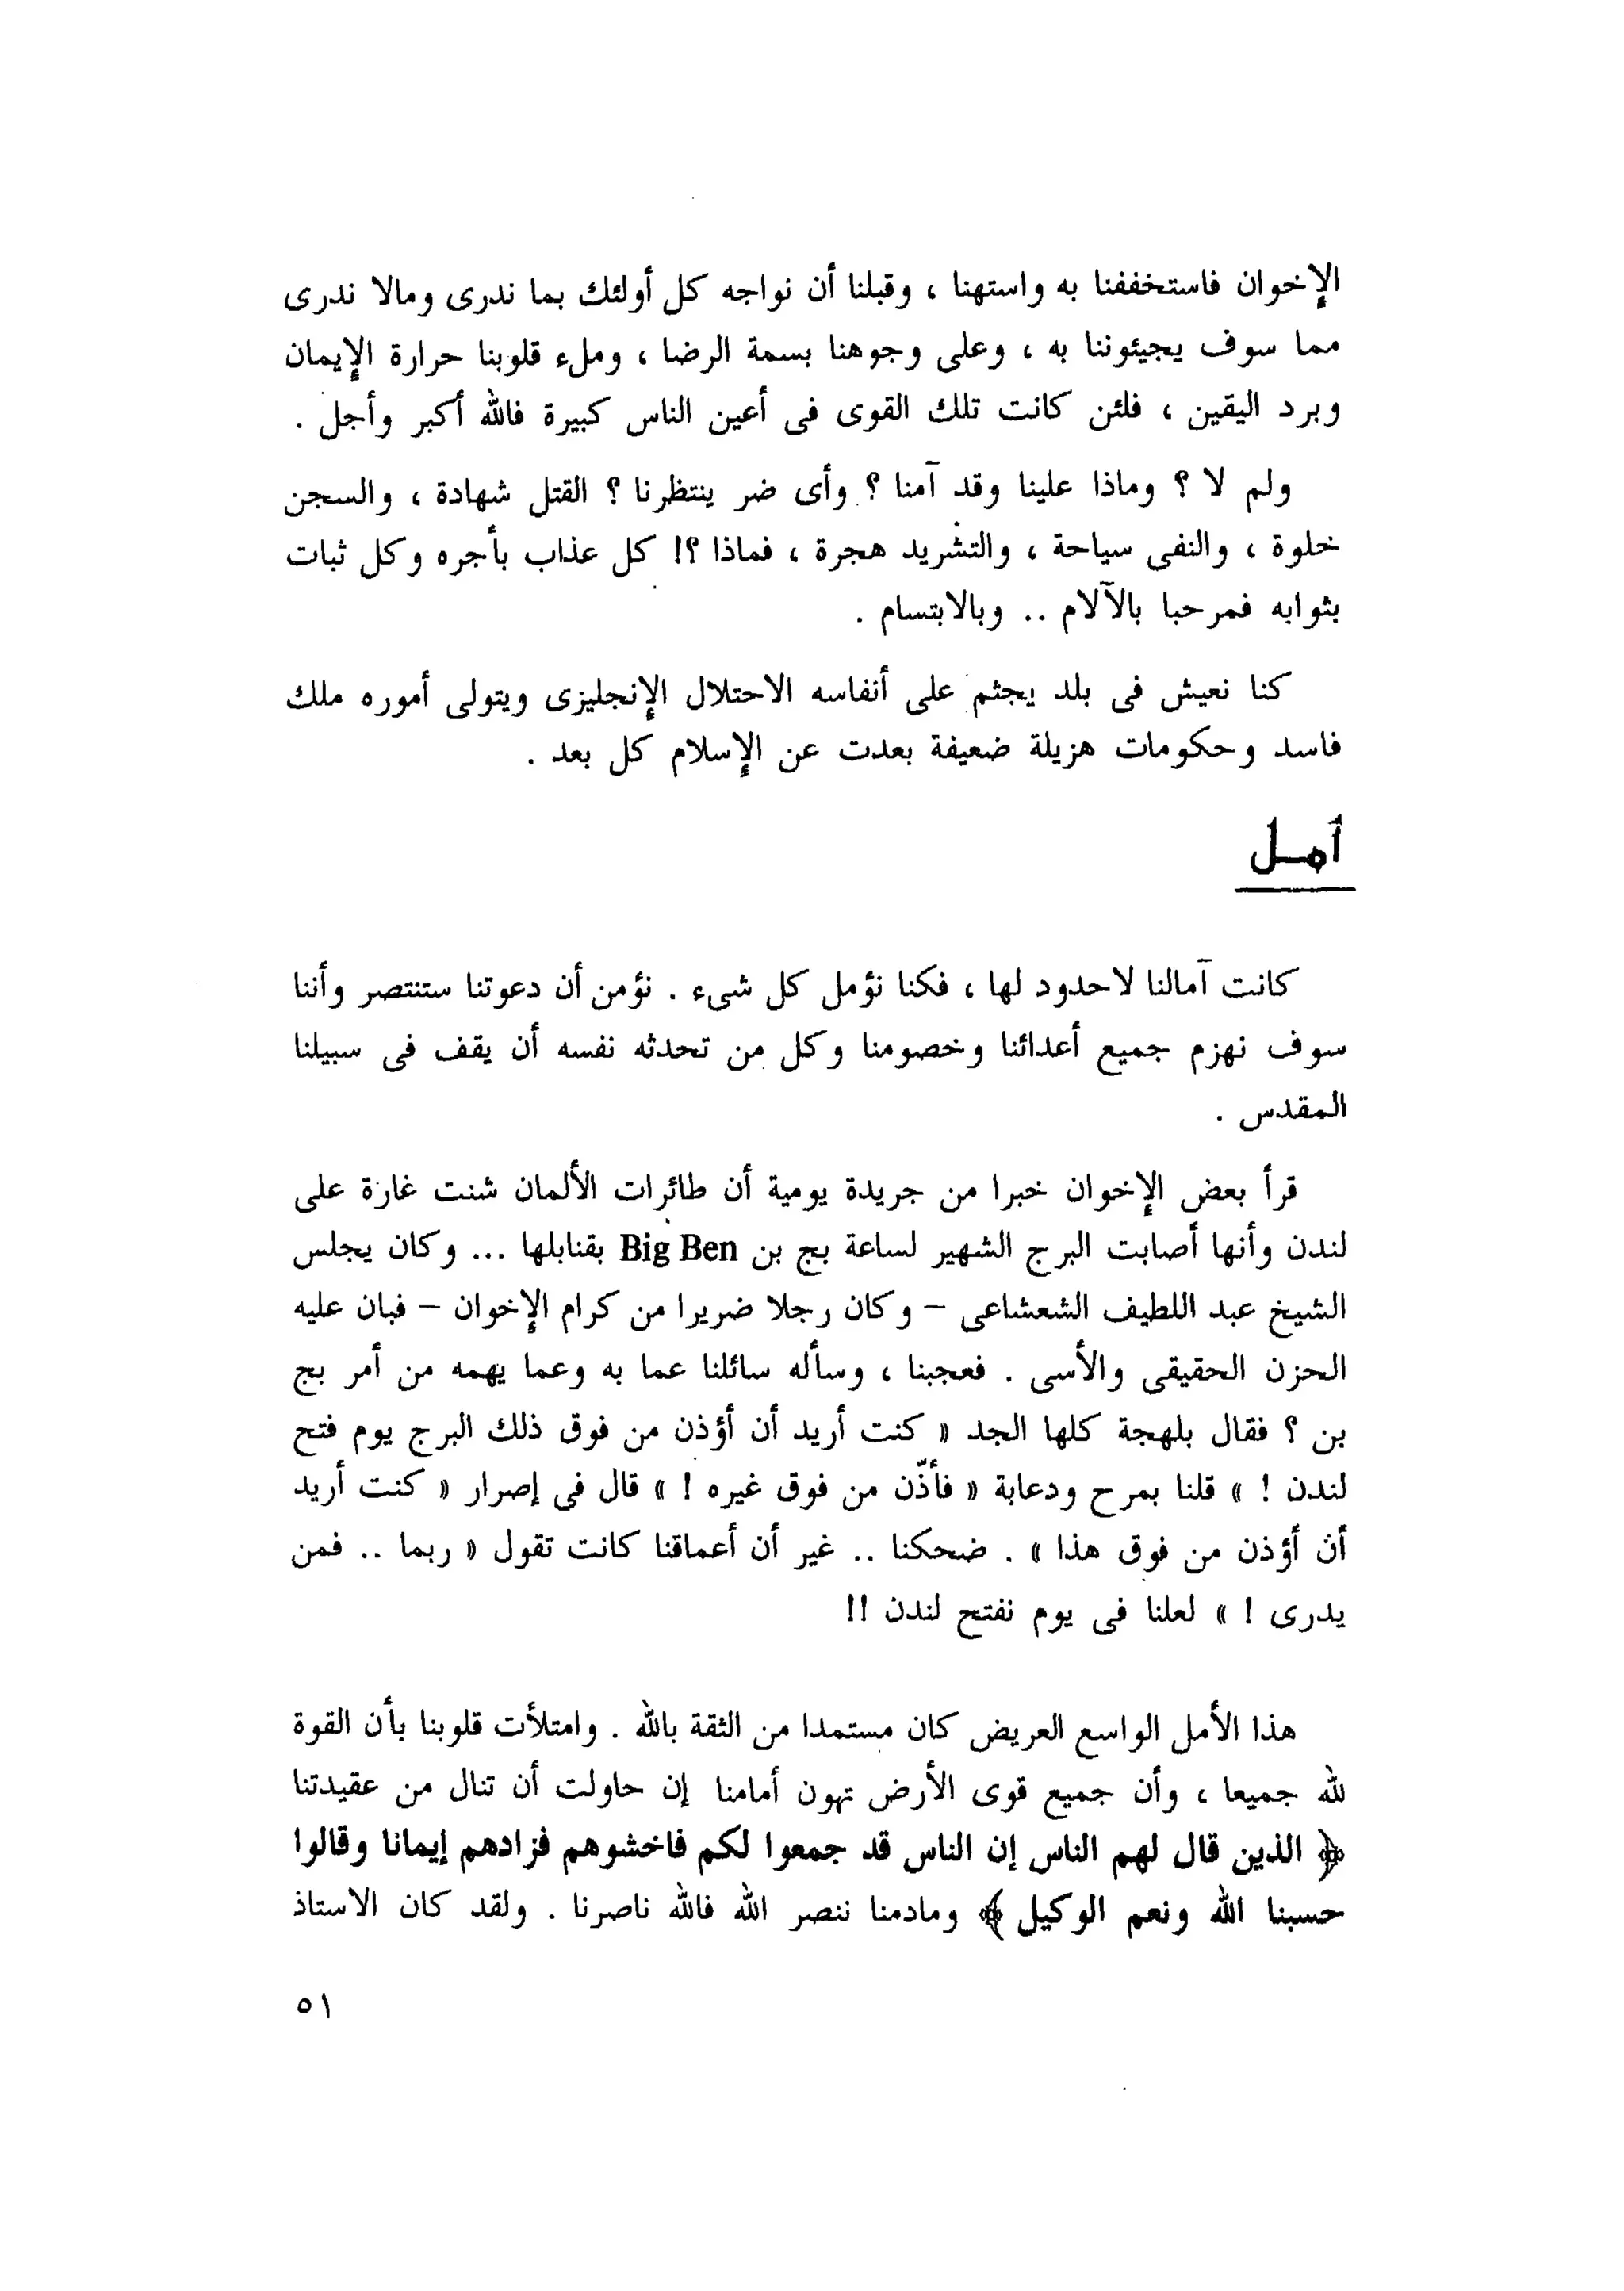 الإخوان فاستخففنا به واستهنا ، وقبلنا أن نواجه كل أولئك بما ندرى ومالا ندرى
مما سوف يجيئوننا به ، وعلى وجوهنا بسمة الرضا ، وملء قلوبنا حرارة الإيمان
وبرد اليقين ، فلئن كانت تلك القوى فى أعين الناس كبيرة فالله أكبر وأجل .
ولم لا ؟ وماذا علينا وقد آمنا ؟ وأى ضر ينتظرنا ؟ القتل شهادة ، والسجن
خلوة ، والنفى سياحة ، والتشريد هجرة ، فماذا ؟! كل عذاب بأجره وكل ثبات
بثوابه فمرحبا بالآلام .. وبالابتسام .
كنا نعيش فى بلد يجثم على أنفاسه الاحتلال الإنجليزى ويتولى أموره ملك
فاسد وحكومات هزيلة ضعيفة بعدت عن الإسلام كل بعد .
أمل
كانت آمالنا لاحدود لها ، فكنا نؤمل كل شىء . نؤمن أن دعوتنا ستنتصر وأننا
سوف نهزم جميع أعدائنا وخصومنا وكل من تحدثه نفسه أن يقف فى سبيلنا
المقدس .
قرأ بعض الإخوان خبرا من جريدة يومية أن طائرات الألمان شنت غارة على
لندن وأنها أصابت البرج الشهير لساعة بج بن Big Ben بقنابلها ... وكان يجلس
الشيخ عبد اللطيف الشعشاعى – وكان رجلا ضريرا من كرام الإخوان – فبان عليه
الحزن الحقيقى والأسى . فعجبنا ، وسأله سائلنا عما به وعما يهمه من أمر بج
بن ؟ فقال بلهجة كلها الجد « كنت أريد أن أؤذن من فوق ذلك البرج يوم فتح
لندن ! » قلنا بمرح ودعابة « فأذّن من فوق غيره ! » قال فى إصرار « كنت أريد
أن أؤذن من فوق هذا » . ضحكنا .. غير أن أعماقنا كانت تقول « ربما .. فمن
يدرى ! » لعلنا فى يوم نفتح لندن !!
هذا الأمل الواسع العريض كان مستمدا من الثقة بالله . وامتلأت قلوبنا بأن القوة
لله جميعا ، وأن جميع قوى الأرض تهون أمامنا إن حاولت أن تنال من عقيدتنا
﴿ الذين قال لهم الناس إن الناس قد جمعوا لكم فاخشوهم فزادهم إيمانا وقالوا
حسبنا الله ونعم الوكيل ﴾ ومادمنا ننصر الله فالله ناصرنا . ولقد كان الاستاذ
٥١